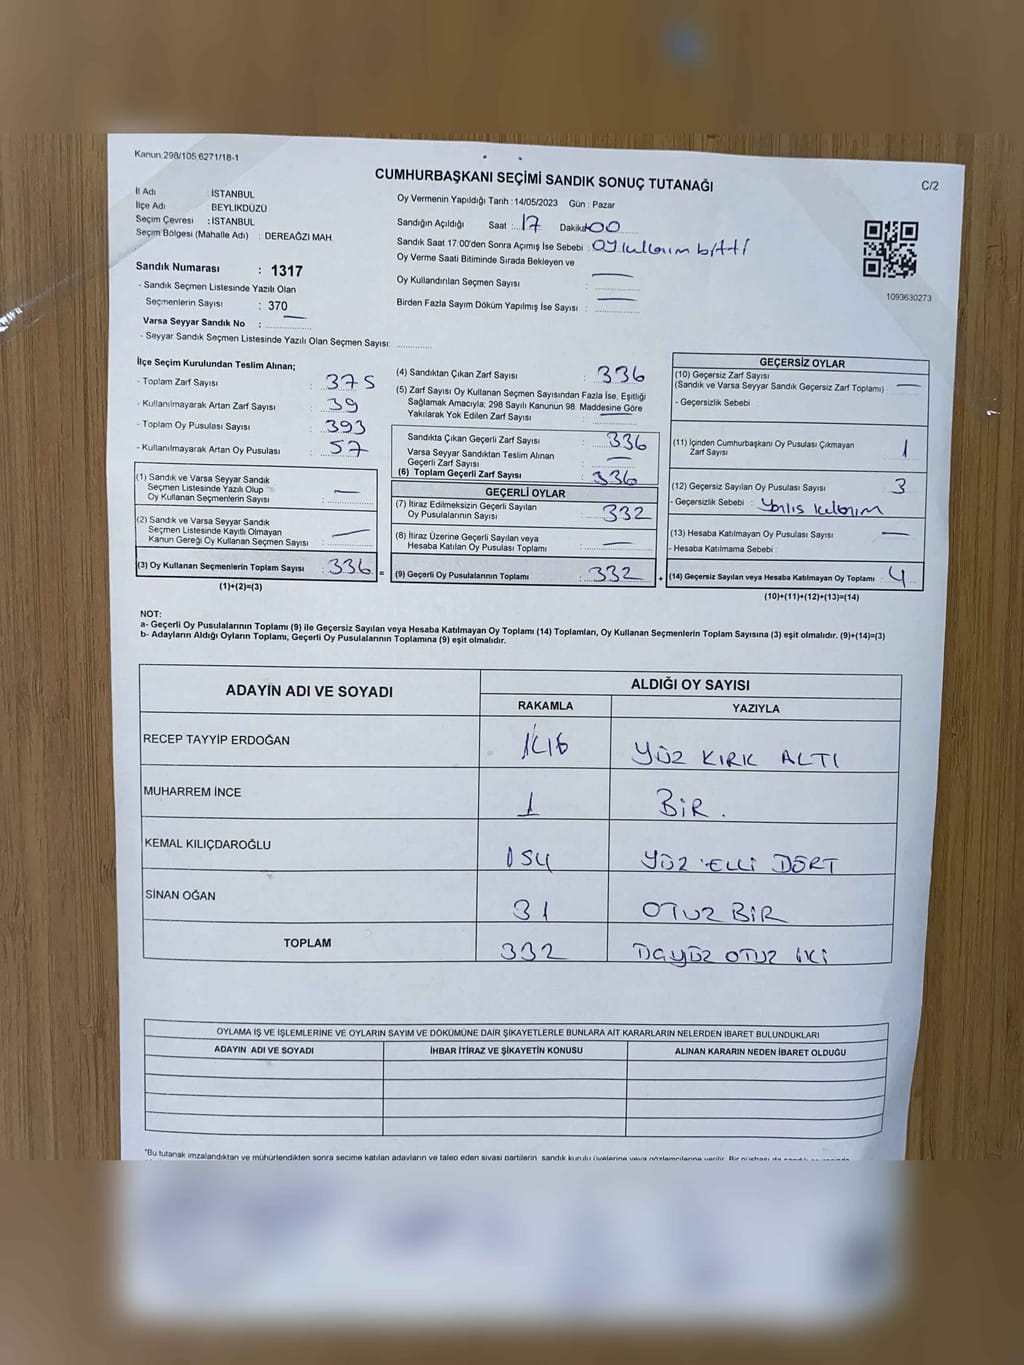 Kanun.298/105.6271/18-1
CUMHURBAŞKANI SEÇİMİ SANDIK SONUÇ TUTANAĞI
C/2
İl Adı : İSTANBUL
İlçe Adı : BEYLİKDÜZÜ
Seçim Çevresi : İSTANBUL
Seçim Bölgesi (Mahalle Adı) : DEREAĞZI MAH.
Sandık Numarası : 1317
- Sandık Seçmen Listesinde Yazılı Olan
Seçmenlerin Sayısı : 370
Varsa Seyyar Sandık No :
- Seyyar Sandık Seçmen Listesinde Yazılı Olan Seçmen Sayısı:
Oy Vermenin Yapıldığı Tarih : 14/05/2023 Gün : Pazar
Sandığın Açıldığı Saat : 17 Dakika 00
Sandık Saat 17:00'den Sonra Açımış İse Sebebi Oy kullanım bitti
Oy Verme Saati Bitiminde Sırada Bekleyen ve
Oy Kullandırılan Seçmen Sayısı :
Birden Fazla Sayım Döküm Yapılmış İse Sayısı :
1093630273
İlçe Seçim Kurulundan Teslim Alınan;
- Toplam Zarf Sayısı : 375
- Kullanılmayarak Artan Zarf Sayısı : 39
- Toplam Oy Pusulası Sayısı : 393
- Kullanılmayarak Artan Oy Pusulası : 57
(1) Sandık ve Varsa Seyyar Sandık
Seçmen Listesinde Yazılı Olup
Oy Kullanan Seçmenlerin Sayısı :
(2) Sandık ve Varsa Seyyar Sandık
Seçmen Listesinde Kayıtlı Olmayan
Kanun Gereği Oy Kullanan Seçmen Sayısı :
(3) Oy Kullanan Seçmenlerin Toplam Sayısı : 336 =
(1)+(2)=(3)
(4) Sandıktan Çıkan Zarf Sayısı : 336
(5) Zarf Sayısı Oy Kullanan Seçmen Sayısından Fazla İse, Eşitliği
Sağlamak Amacıyla, 298 Sayılı Kanunun 98. Maddesine Göre
Yakılarak Yok Edilen Zarf Sayısı :
Sandıkta Çıkan Geçerli Zarf Sayısı : 336
Varsa Seyyar Sandıktan Teslim Alınan
Geçerli Zarf Sayısı :
(6) Toplam Geçerli Zarf Sayısı : 336
GEÇERLİ OYLAR
(7) İtiraz Edilmeksizin Geçerli Sayılan
Oy Pusulalarının Sayısı : 332
(8) İtiraz Üzerine Geçerli Sayılan veya
Hesaba Katılan Oy Pusulası Toplamı :
(9) Geçerli Oy Pusulalarının Toplamı : 332 +
GEÇERSİZ OYLAR
(10) Geçersiz Zarf Sayısı
(Sandık ve Varsa Seyyar Sandık Geçersiz Zarf Toplamı) :
- Geçersizlik Sebebi :
(11) İçinden Cumhurbaşkanı Oy Pusulası Çıkmayan
Zarf Sayısı : 1
(12) Geçersiz Sayılan Oy Pusulası Sayısı : 3
- Geçersizlik Sebebi : Yanlış kullanım
(13) Hesaba Katılmayan Oy Pusulası Sayısı :
- Hesaba Katılmama Sebebi :
(14) Geçersiz Sayılan veya Hesaba Katılmayan Oy Toplamı : 4
(10)+(11)+(12)+(13)=(14)
NOT:
a- Geçerli Oy Pusulalarının Toplamı (9) ile Geçersiz Sayılan veya Hesaba Katılmayan Oy Toplamı (14) Toplamları, Oy Kullanan Seçmenlerin Toplam Sayısına (3) eşit olmalıdır. (9)+(14)=(3)
b- Adayların Aldığı Oyların Toplamı, Geçerli Oy Pusulalarının Toplamına (9) eşit olmalıdır.
ADAYIN ADI VE SOYADI
ALDIĞI OY SAYISI
RAKAMLA YAZIYLA
RECEP TAYYİP ERDOĞAN 146 YÜZ KIRK ALTI
MUHARREM İNCE 1 BİR.
KEMAL KILIÇDAROĞLU 154 YÜZ ELLİ DÖRT
SİNAN OĞAN 31 OTUZ BİR
TOPLAM 332 OTUZ İKİ
OYLAMA İŞ VE İŞLEMLERİNE VE OYLARIN SAYIM VE DÖKÜMÜNE DAİR ŞİKAYETLERLE BUNLARA AİT KARARLARIN NELERDEN İBARET BULUNDUKLARI
ADAYIN ADI VE SOYADI İHBAR İTİRAZ VE ŞİKAYETİN KONUSU ALINAN KARARIN NEDEN İBARET OLDUĞU
*Bu tutanak imzalandıktan ve mühürlendikten sonra seçime katılan adayların ve talep eden siyasi partilerin, sandık kurulu üyelerine veya gözlemcilerine verilir.